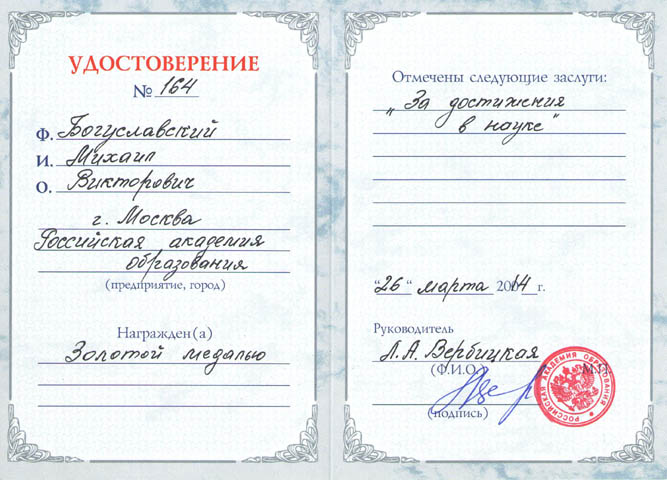 УДОСТОВЕРЕНИЕ
№ 164
Ф. Богуславский
И. Михаил
О. Викторович
г. Москва
Российская академия
образования
(предприятие, город)
Награжден(а)
Золотой медалью
Отмечены следующие заслуги:
„За достижения
в науке"
"26" марта 2014 г.
Руководитель
Л.А. Вербицкая
(Ф.И.О.) М.П.
(подпись)
РОССИЙСКАЯ АКАДЕМИЯ ОБРАЗОВАНИЯ